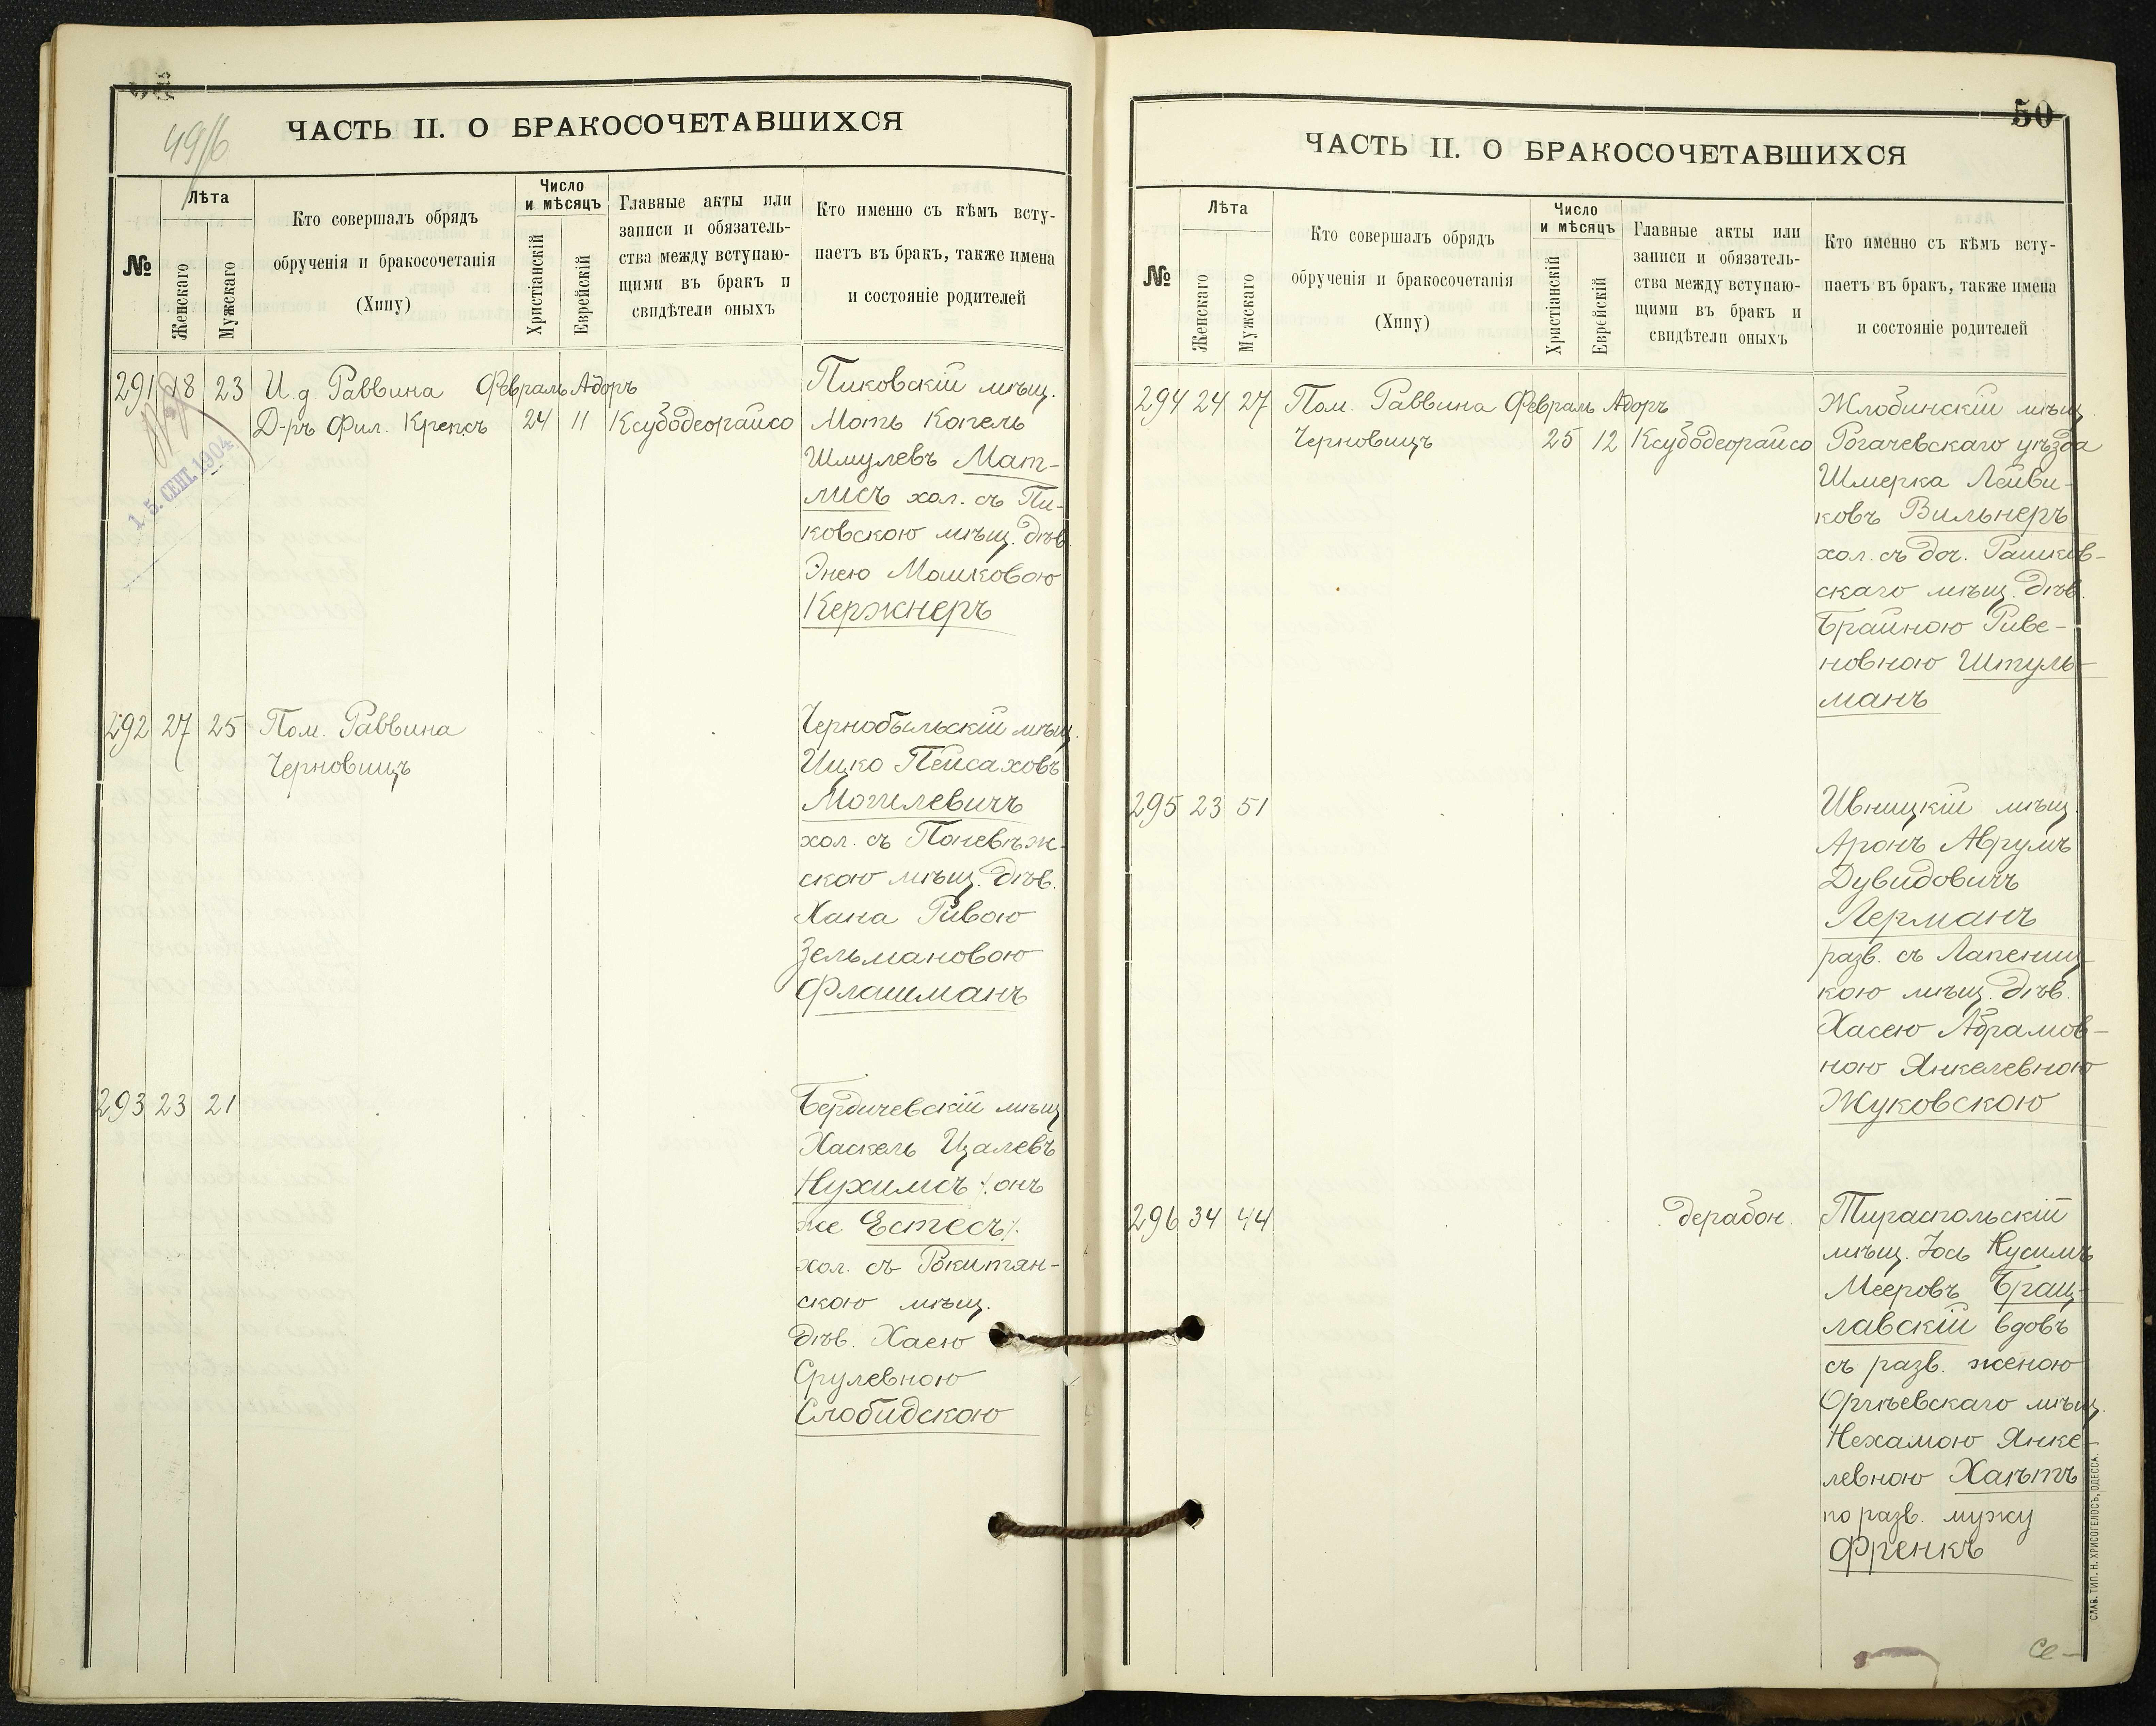 49/6
ЧАСТЬ II. О БРАКОСОЧЕТАВШИХСЯ
№
Лѣта
Женскаго
Мужскаго
Кто совершалъ обрядъ
обрученія и бракосочетанія
(Хипу)
Число
и мѣсяцъ
Христіанскій
Еврейскій
Главные акты или
записи и обязатель-
ства между вступаю-
щими въ бракъ и
свидѣтели оныхъ
Кто именно съ кѣмъ всту-
паетъ въ бракъ, также имена
и состояніе родителей
291 18 23 И. д. Раввина Февраль Адоръ
Д-ръ Фил. Крепсъ 24 11 Ксубодеорайсо
15. СЕНТ. 1904
Пиковскій мѣщ.
Моть Копель
Шмулевъ Мат-
лисъ хол. съ Пи-
ковскою мѣщ. дѣв.
Энею Мошковою
Кержнеръ
292 27 25 Пом. Раввина
Черновицъ
Чернобыльскій мѣщ.
Ицко Пейсаховъ
Могилевичъ
хол. съ Поневѣж-
скою мѣщ. дѣв.
Хана Ривою
Зельмановою
Флашманъ
293 23 21
Бердичевскій мѣщ.
Хаскель Цалевъ
Нухимсъ /. онъ
же Естесъ /.
хол. съ Рокитян-
скою мѣщ.
дѣв. Хаею
Срулевною
Слободскою
50
ЧАСТЬ II. О БРАКОСОЧЕТАВШИХСЯ
№
Лѣта
Женскаго
Мужскаго
Кто совершалъ обрядъ
обрученія и бракосочетанія
(Хипу)
Число
и мѣсяцъ
Христіанскій
Еврейскій
Главные акты или
записи и обязатель-
ства между вступаю-
щими въ бракъ и
свидѣтели оныхъ
Кто именно съ кѣмъ всту-
паетъ въ бракъ, также имена
и состояніе родителей
294 24 27 Пом. Раввина Февраль Адоръ
Черновицъ 25 12 Ксубодеорайсо
Жлобинскій мѣщ.
Рогачевскаго уѣзда
Шмерка Лейви-
ковъ Вильнеръ
хол. съ доч. Рашков-
скаго мѣщ. дѣв.
Брайною Риве-
новною Штуль-
манъ
295 23 51
Ивницкій мѣщ.
Аронъ Аврумъ
Дувидовичъ
Лерманъ
разв. съ Лапениц-
кою мѣщ. дѣв.
Хасею Абрамов-
ною Янкелевною
Жуковскою
296 34 44 дерабон.
Тираспольскій
мѣщ. Іось Нусимъ
Мееровъ Брац-
лавскій вдовъ
съ разв. женою
Оргѣевскаго мѣщ.
Нехамою Янке-
левною Хаѣтъ
по разв. мужу
Френкъ
СЛАВ. ТИП. Н. ХРИСОГЕЛОСЪ, ОДЕССА.